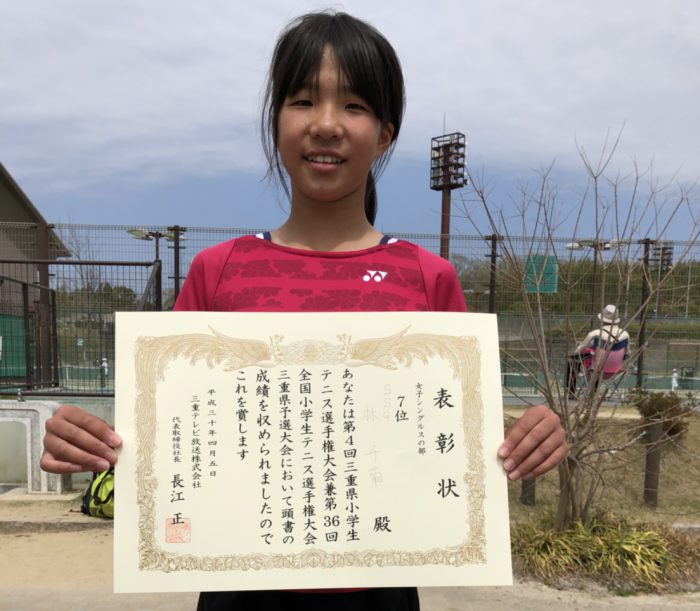 表彰状
女子シングルスの部
7位
SSG
林 千雨 殿
あなたは第4回三重県小学生
テニス選手権大会兼第36回
全国小学生テニス選手権大会
三重県予選大会において頭書の
成績を収められましたので
これを賞します
平成三十年四月五日
三重テレビ放送株式会社
代表取締役社長 長江 正
YONEX